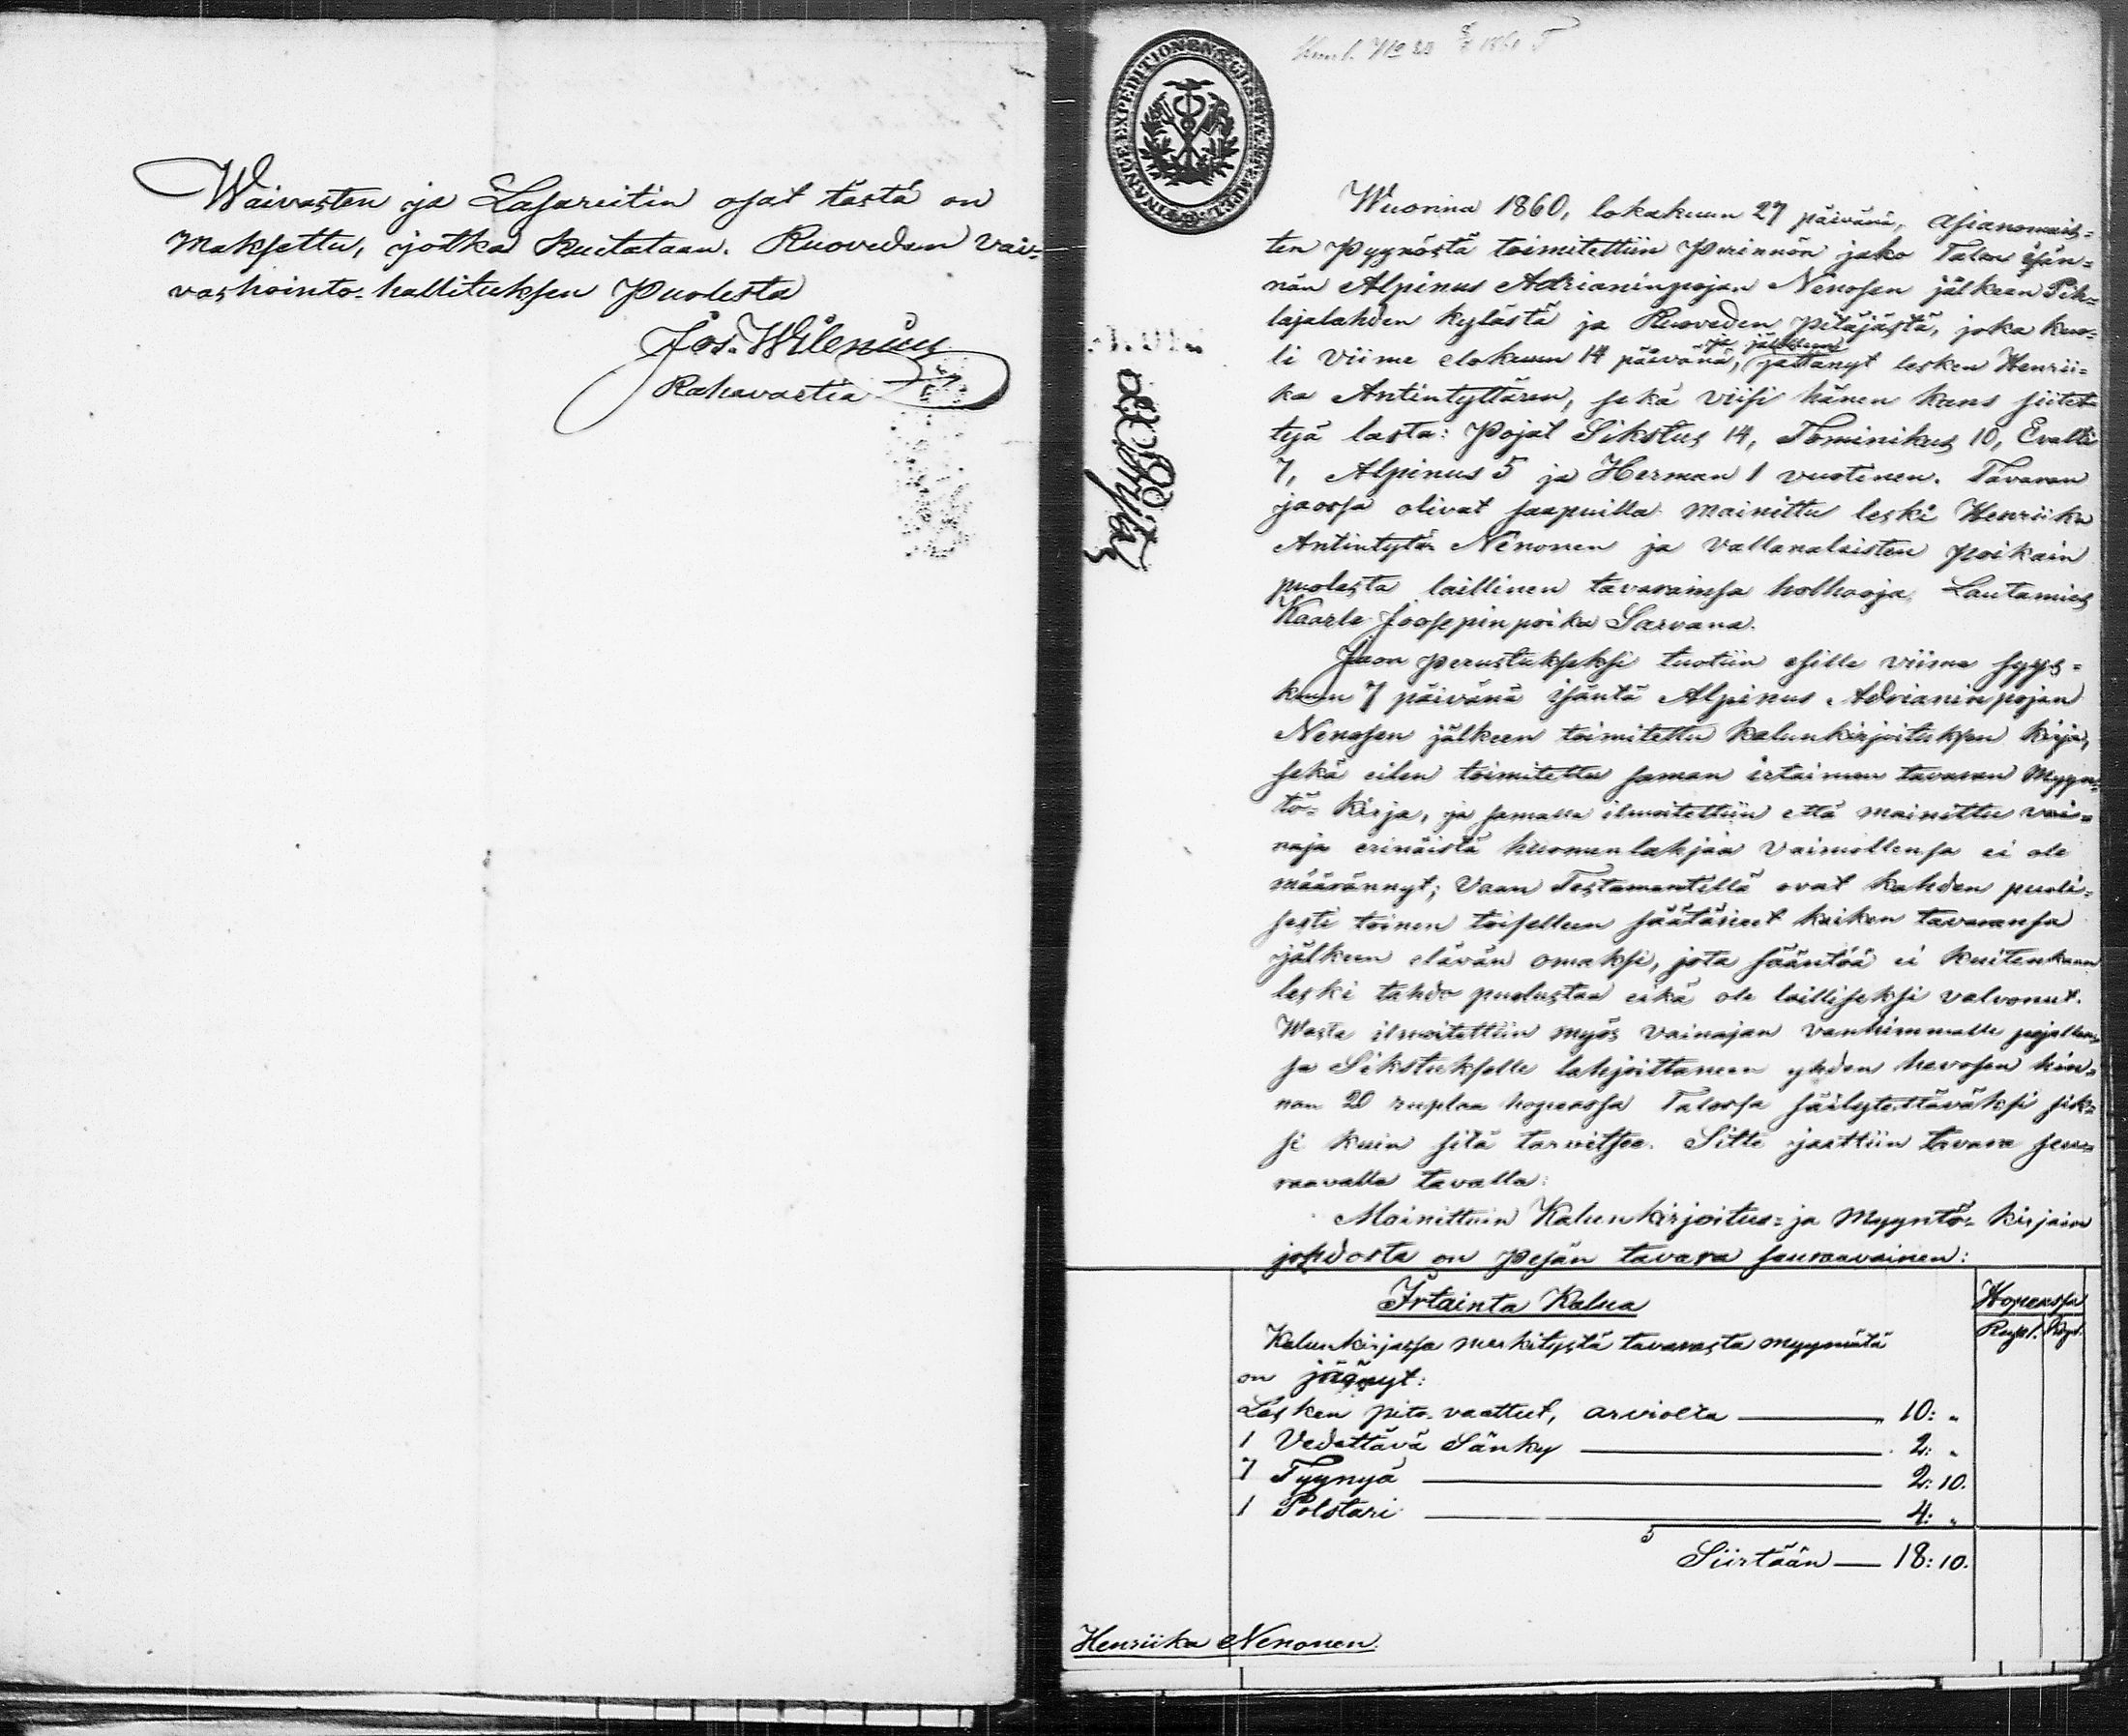 Waivasten ja Lasareitin osat tästä on
Maksettu, jotka kuitataan. Ruoveden vai-
vashointo-hallituksen Puolesta
Jos. Wilenius
Rahavartia
No 20 1861
Wuonna 1860, lokakuun 27 päivänä, asianomais-
ten Pyynöstä toimitettiin Perinnön jako Talon isän-
nän Alpinus Adrianinpojan Nenosen jälkeen Pih-
lajalahden kylästä ja Ruoveden pitäjästä, joka kuo-
li viime elokuun 14 päivänä, ja jälkeen jättänyt lesken Henrii-
ka Antintyttären, sekä viisi hänen kans siitet-
tyä lasta: Pojat Sikstus 14, Tominikus 10, Evalti
7, Alpinus 5 ja Herman 1 vuotinen. Tavaran
jaossa olivat saapuilla mainittu leski Henriika
Antintytär Nenonen ja vallanalaisten poikain
puolesta laillinen tavarainsa holhooja, Lautamies
Kaarle Joosepinpoika Sarvana.
Jaon perustukseksi tuotiin esille viime syys-
kuun 7 päivänä isäntä Alpinus Adrianinpojan
Nenosen jälkeen toimitettu kalunkirjoituksen kirja,
sekä eilen toimitettu saman irtaimen tavaran Myyn-
tö-kirja, ja samassa ilmoitettiin että mainittu vai-
naja erinäistä huomenlahjaa vaimollensa ei ole
määrännyt; Vaan Testamentillä ovat kahden puoli-
sesti toinen toisellen säätäneet kaiken tavaransa
jälkeen elävän omaksi, jota sääntöä ei kuitenkaan
leski tahdo puolustaa eikä ole lailliseksi valvonut.
Wasta ilmoitettiin myös vainajan vanhimmalle pojallen-
sa Sikstukselle lahjoittaneen yhden hevosen hin-
nan 20 ruplaa hopeassa Talossa säilytettäväksi sik-
si kuin sitä tarvitsee. Sitte jaettiin tavara seu-
raavalla tavalla:
Mainittuin Kalunkirjoitus- ja Myyntö-kirjain
johdosta on pesän tavara seuraavainen:
Irtainta Kalua
Hopeassa
Rupl. Kop.
Kalunkirjassa merkitystä tavarasta myymätä
on jäänyt:
Lesken pito-vaatteet, arviolta 10: "
1 Vedettävä Sänky 2: "
7 Tyynyä 2: 10.
1 Polstari 4: "
Siirtään 18: 10.
Henriika Nenonen